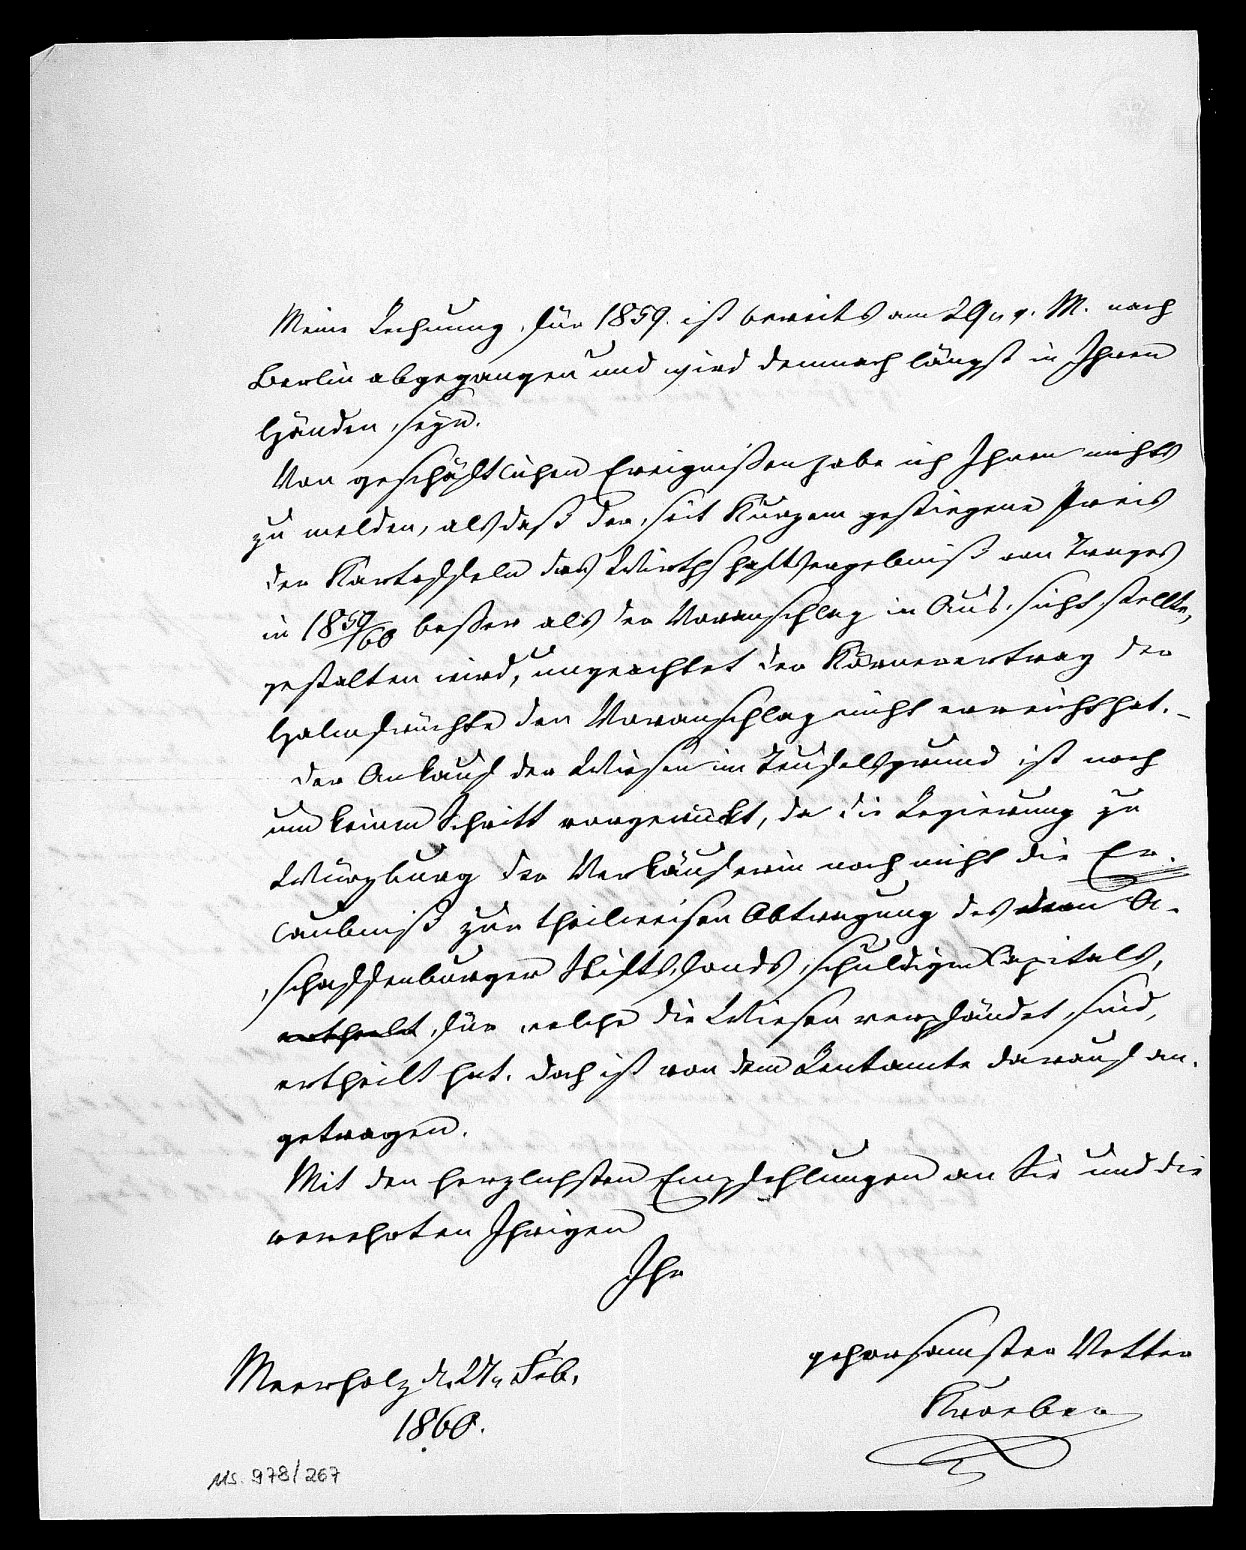 Meine Rechnung für 1859. ist bereits am 29. v. M. nach
Berlin abgegangen und wird demnach längst in Ihren
Händen seyn.
Von geschäftlichen Ereignißen habe ich Ihnen nichts
zu melden, als daß der seit Kurzem gestiegene Preis
der Kartoffeln das Wirthschaftsergebniß von Trages
in 1859/60 beßer als der Voranschlag in Aussicht stellte,
gestalten wird, ungeachtet der Körnerertrag der
Halmfrüchte den Voranschlag nicht erreicht hat. _
Der Ankauf der Wiesen im Teufelsgrund ist noch
um keinen Schritt vorgerückt, da die Regierung zu
Würzburg der Verkäuferin noch nicht die Er-
laubniß zur theilweisen Abtragung des dem A-
schaffenburger Stiftsfonds schuldigen Capitals,
ertheilt für welche die Wiesen verpfändet sind,
ertheilt hat. Doch ist von dem Rentamte darauf an-
getragen.
Mit den herzlichsten Empfehlungen an Sie und die
verehrten Ihrigen
Ihr
gehorsamster Vetter
Kroeber
Meerholz d. 27. Feb.
1860.
Ms. 978/267